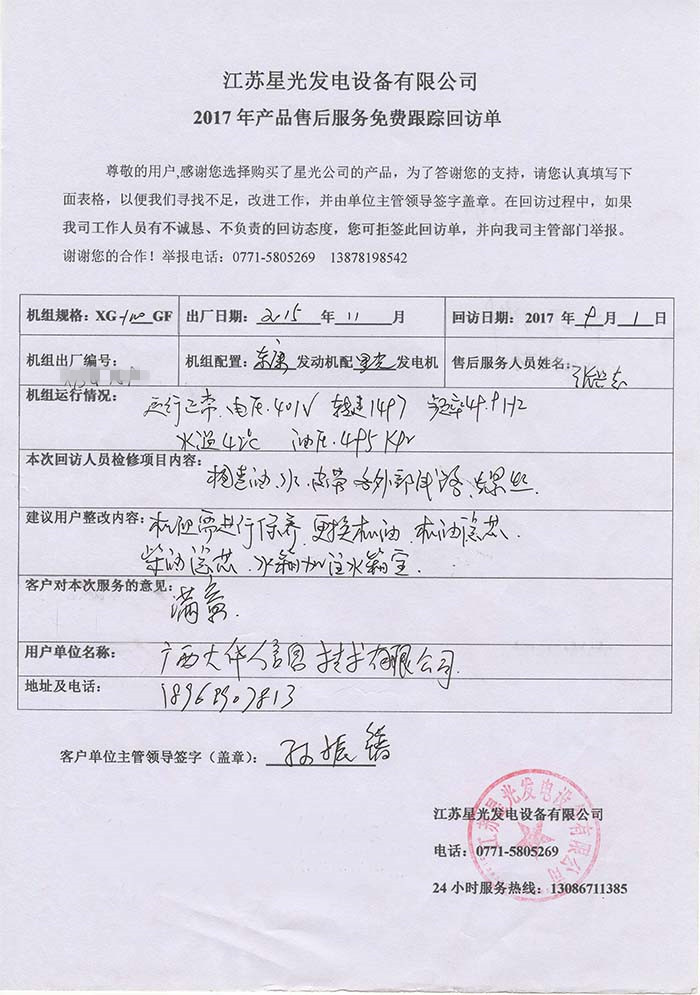 江苏星光发电设备有限公司
2017 年产品售后服务免费跟踪回访单
尊敬的用户,感谢您选择购买了星光公司的产品，为了答谢您的支持，请您认真填写下
面表格，以便我们寻找不足，改进工作，并由单位主管领导签字盖章。在回访过程中，如果
我司工作人员有不诚恳、不负责的回访态度，您可拒签此回访单，并向我司主管部门举报。
谢谢您的合作！举报电话：0771-5805269 13878198542
机组规格：XG-100GF 出厂日期：2015 年 11 月 回访日期：2017 年 9 月 1 日
机组出厂编号： 机组配置：东康 发动机配 星光 发电机 售后服务人员姓名：
机组运行情况：
运行正常、电压401V 转速1497 频率49.9HZ
水温 油压.495 Kpa
本次回访人员检修项目内容：
油.水.皮带 外部 螺丝.
建议用户整改内容：
机组需进行保养、更换机油、机油滤芯、
柴油滤芯、水箱加注水箱宝.
客户对本次服务的意见：
满意
用户单位名称：
广西大华信息技术有限公司
地址及电话：
18968907813
客户单位主管领导签字（盖章）： 孙振
江苏星光发电设备有限公司
江苏星光发电设备有限公司
电话：0771-5805269
24 小时服务热线：13086711385